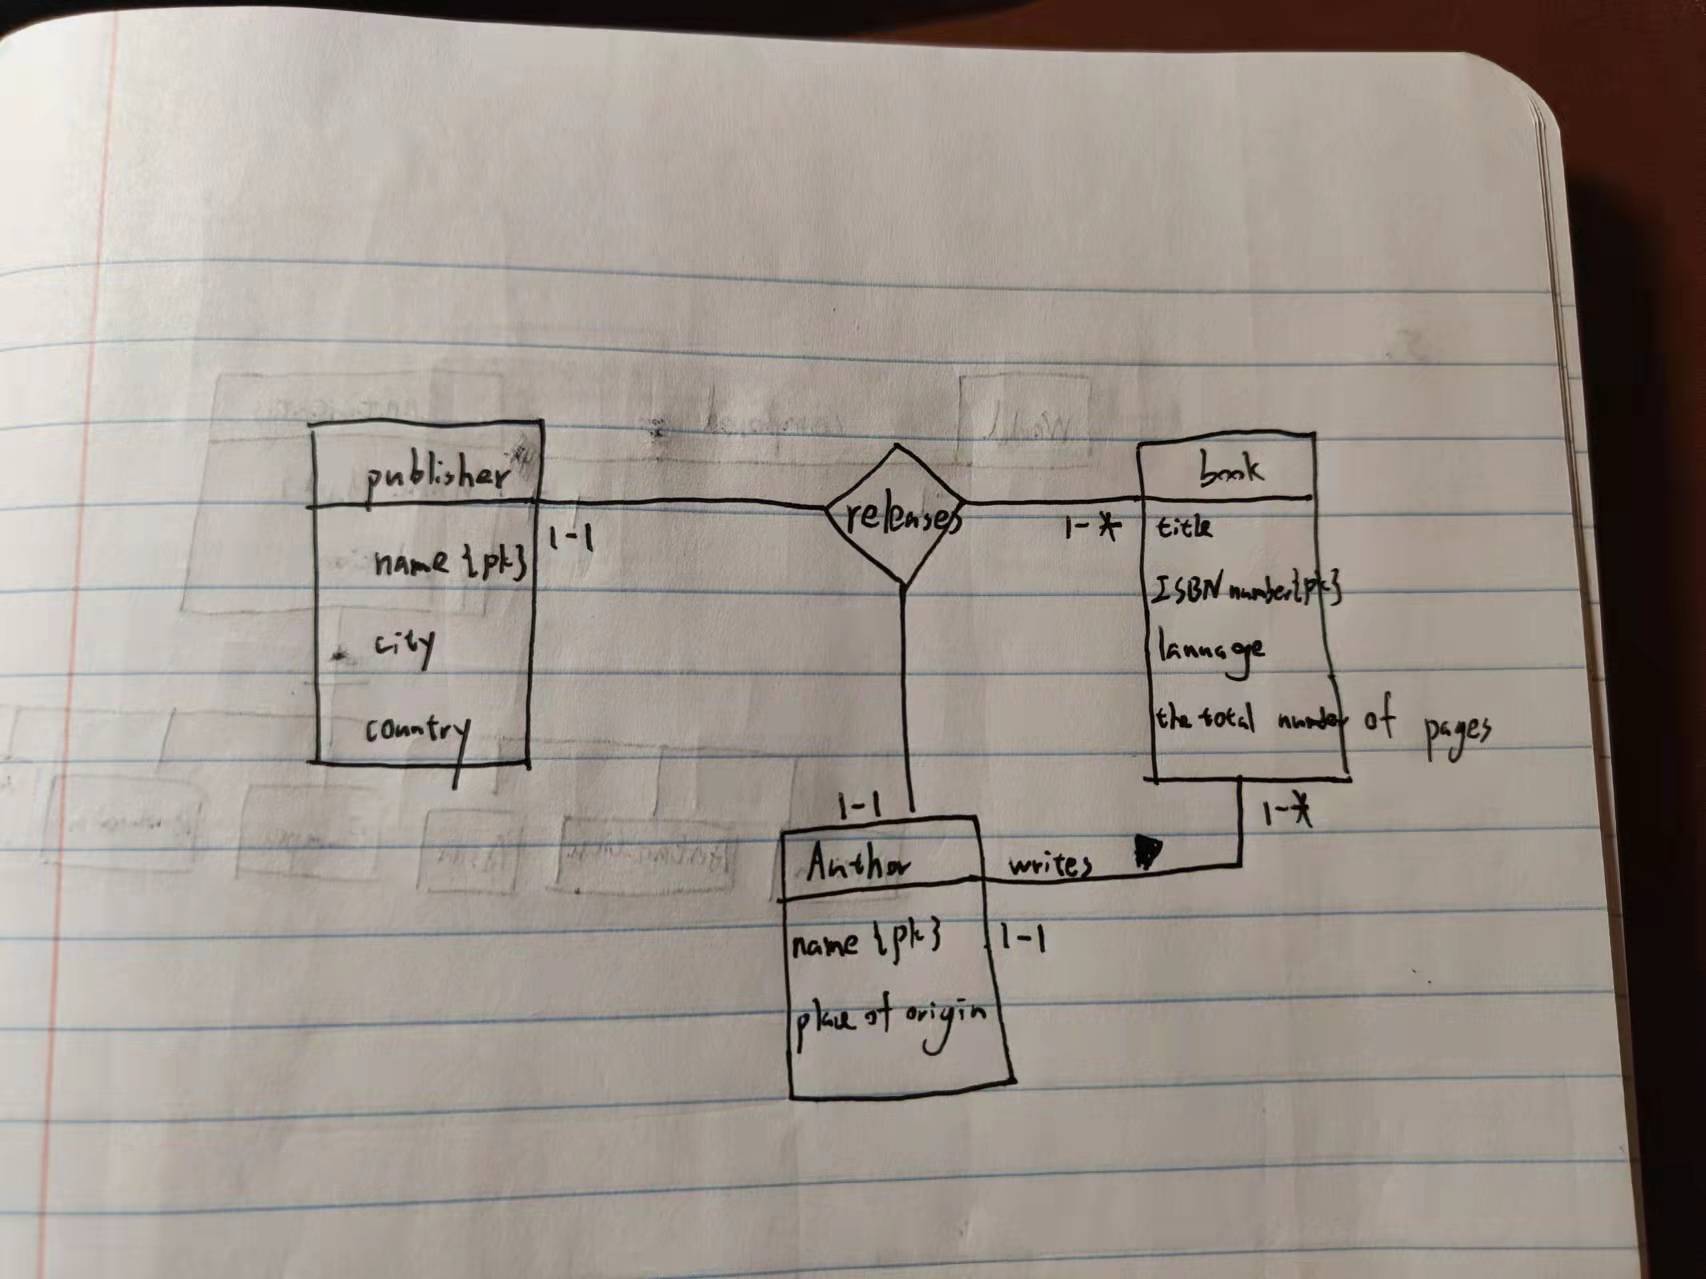 publisher
name {pk}
city
country
1-1
releases
1-*
book
title
ISBN number{pk}
lannage
the total number of pages
1-*
1-1
Author
name {pk}
place of origin
writes
1-1